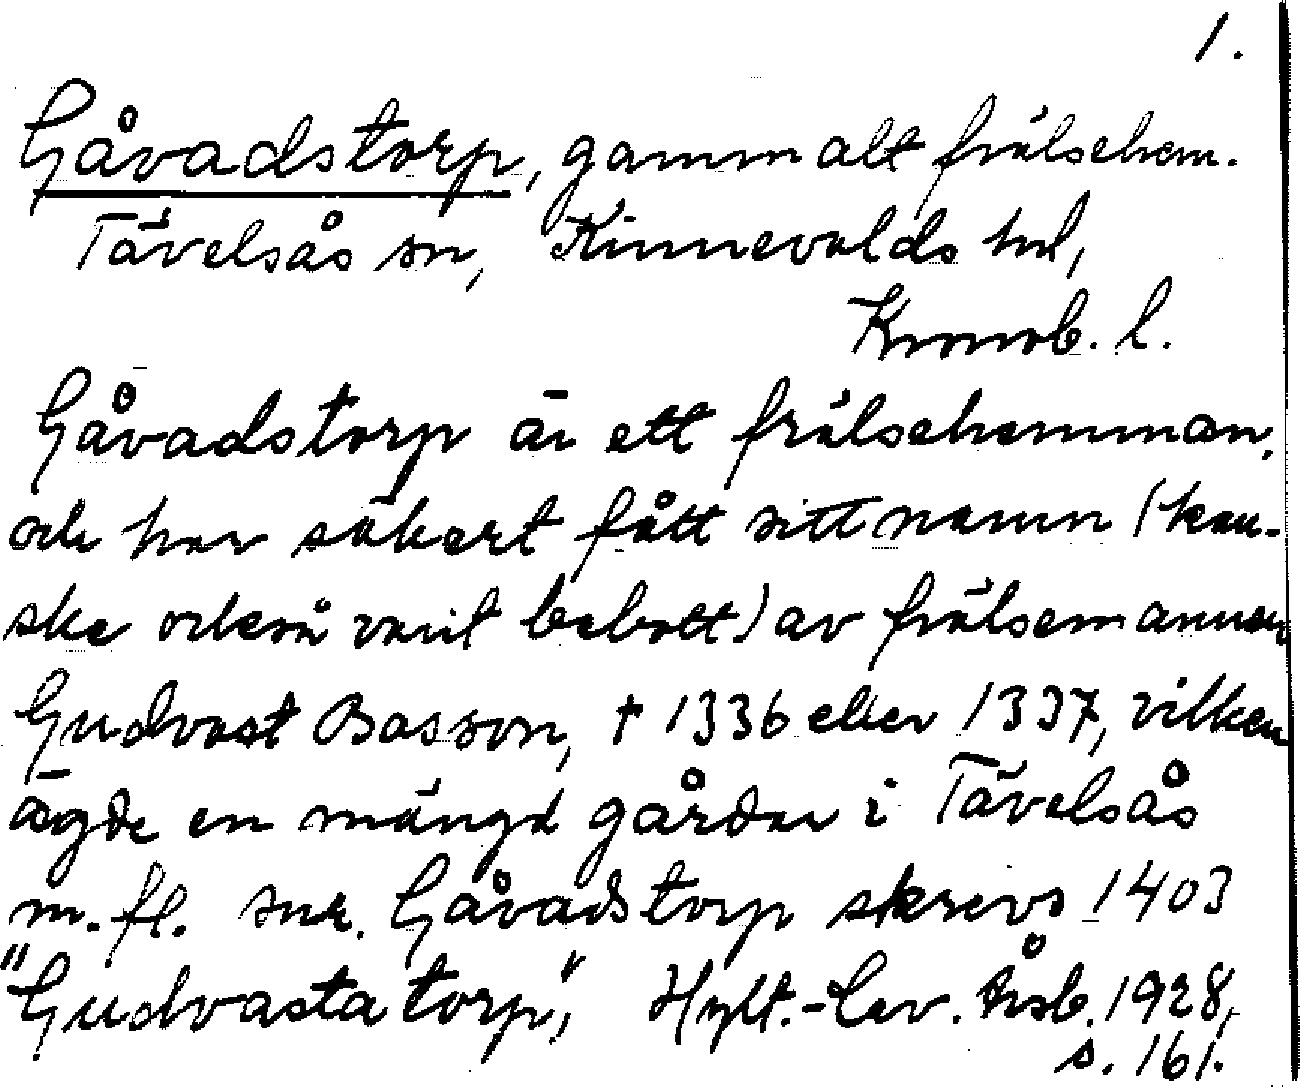 1.
Gåvadstorp, gammalt frälsehem.
Tävelsås sn, Kinnevalds hd,
Kronob. l.
Gåvadstorp är ett frälsehemman,
och har säkert fått sitt namn (kan-
ske också varit bebott) av frälsemannen
Gudvast Basson, † 1336 eller 1337, vilken
ägde en mängd gårdar i Tävelsås
m. fl. snr. Gåvadstorp skrevs 1403
"Gudvasta torp", Hylt.-Cav. Årsb. 1928,
s. 161.